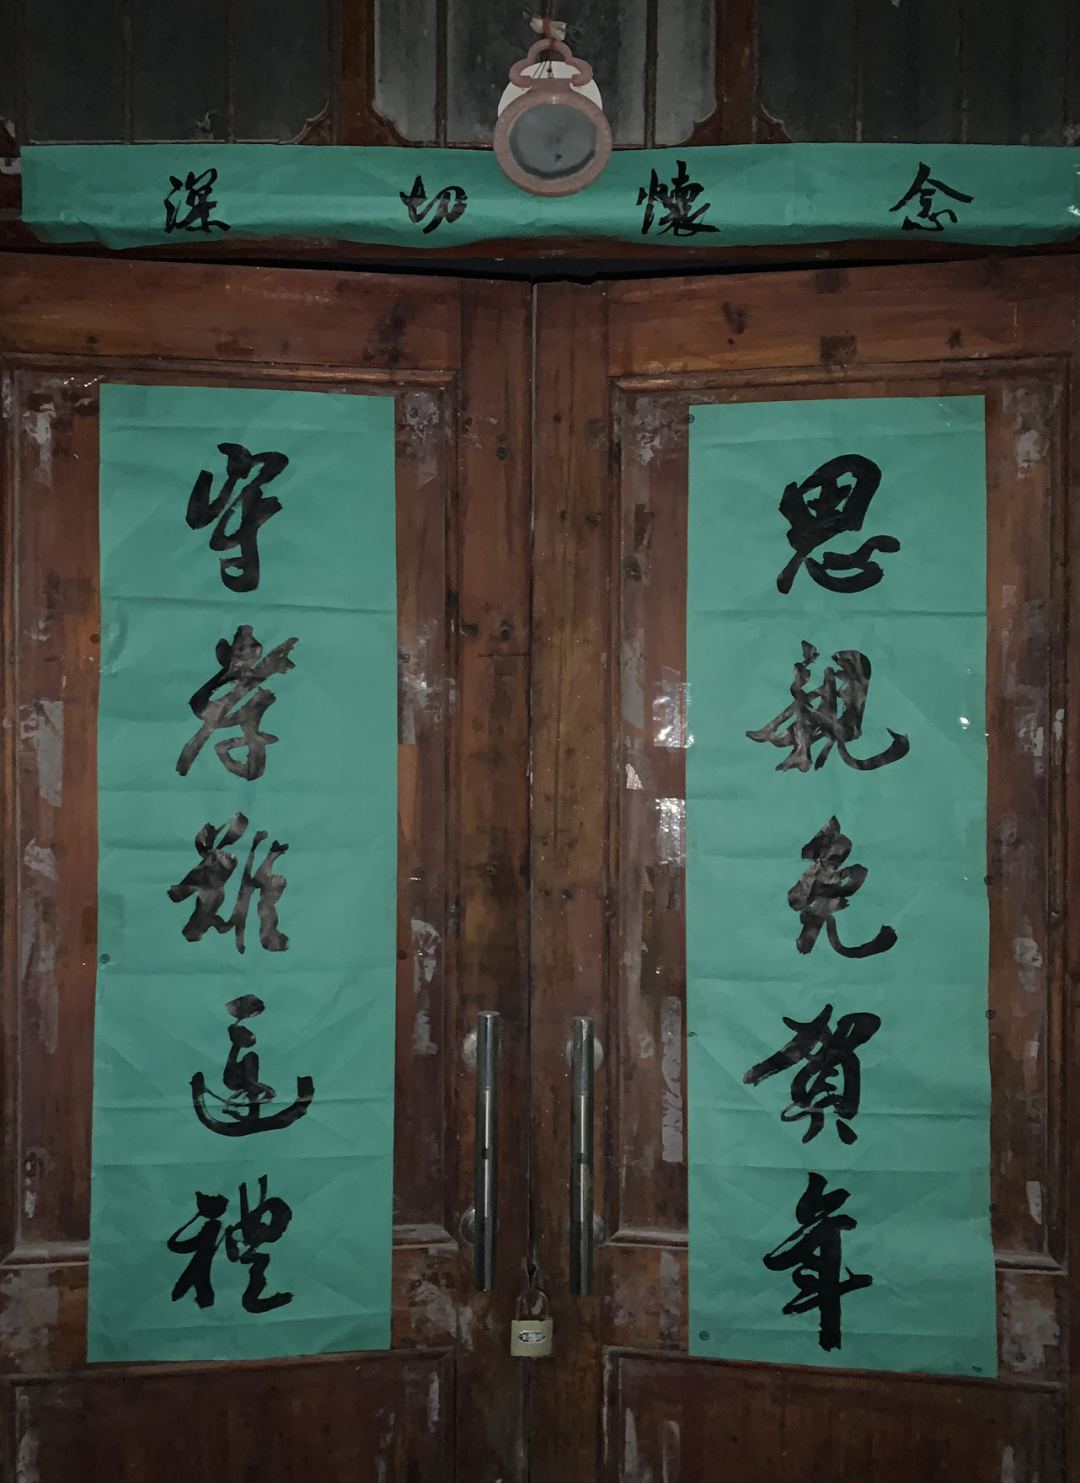 深切懷念
思親免賀年
守孝難還禮